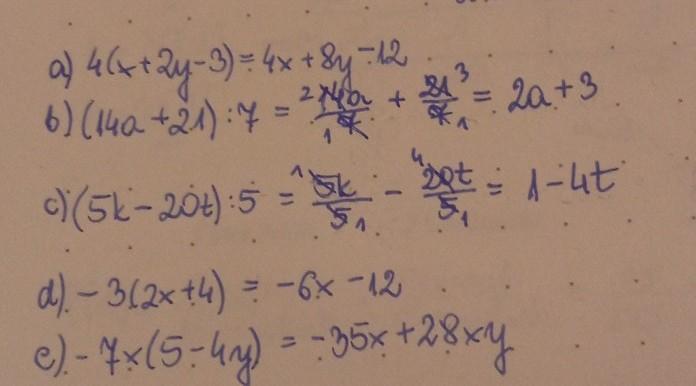 a) 4(x+2y-3) = 4x+8y-12
b) (14a+21):7 = ²14a/7₁ + 21³/7₁ = 2a+3
c) (5k-20t):5 = ¹5k/5₁ - ⁴20t/5₁ = 1-4t
d) -3(2x+4) = -6x-12
e) -7x(5-4y) = -35x+28xy